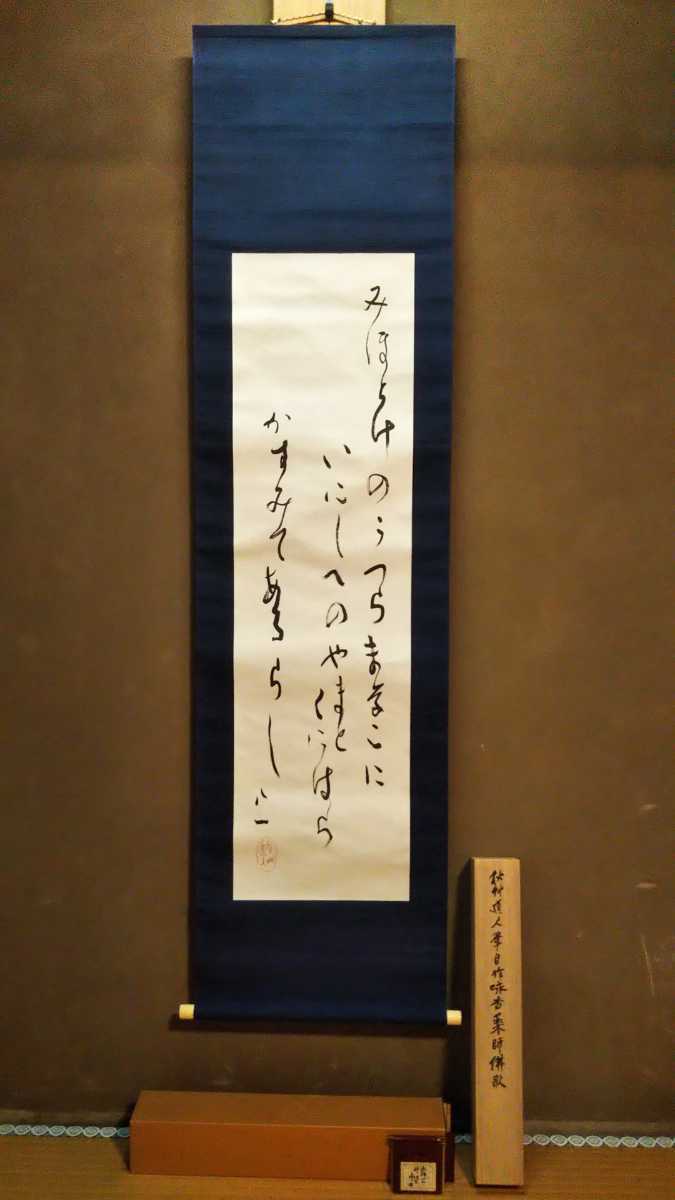 みほとけのうつらまなこに
いにしへのやまとくにはら
かすみてあるらし
八一
秋艸道人筆自作咏香薬師佛歌